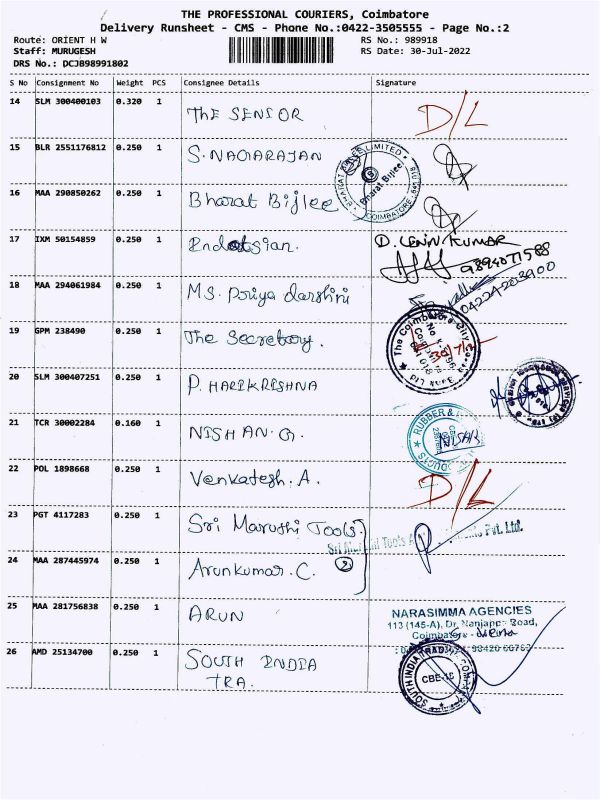 THE PROFESSIONAL COURIERS, Coimbatore
Delivery Runsheet - CMS - Phone No.:0422-3505555 - Page No.:2
Route: ORIENT H W RS No.: 989918
Staff: MURUGESH RS Date: 30-Jul-2022
DRS No.: DCJB98991802
S No Consignment No Weight PCS Consignee Details Signature
14 SLM 300400103 0.320 1 The SENIOR D/L
15 BLR 2551176812 0.250 1 S. NAGARAJAN
LIMITED
Bharat Bijlee
COIMBATORE
16 MAA 290850262 0.250 1 Bharat Bijlee
17 IXM 50154859 0.250 1 D. LENIN KUMAR
9894071588
18 MAA 294061984 0.250 1 MS. Priya darshini
04224203900
19 GPM 238490 0.250 1 The Secretary.
The Coimbatore City
Bank Ltd
20 SLM 300407251 0.250 1 P. HARIKRISHNA
21 TCR 30002284 0.160 1 NISHAN. G.
RUBBER &
PRODUCTS
22 POL 1898668 0.250 1 Venkatesh. A. D/L
23 PGT 4117283 0.250 1 Sri Maruthi Tools.
Sri Tools Pvt. Ltd.
24 MAA 287445974 0.250 1 Arunkumar. C. 2
25 MAA 281756838 0.250 1 ARUN
NARASIMMA AGENCIES
113 (145-A), Dr. Nanjappa Road,
Coimbatore -
26 AMD 25134700 0.250 1 SOUTH INDIA
TRA.
SOUTH INDIA TRADING COMPANY
CBE-18